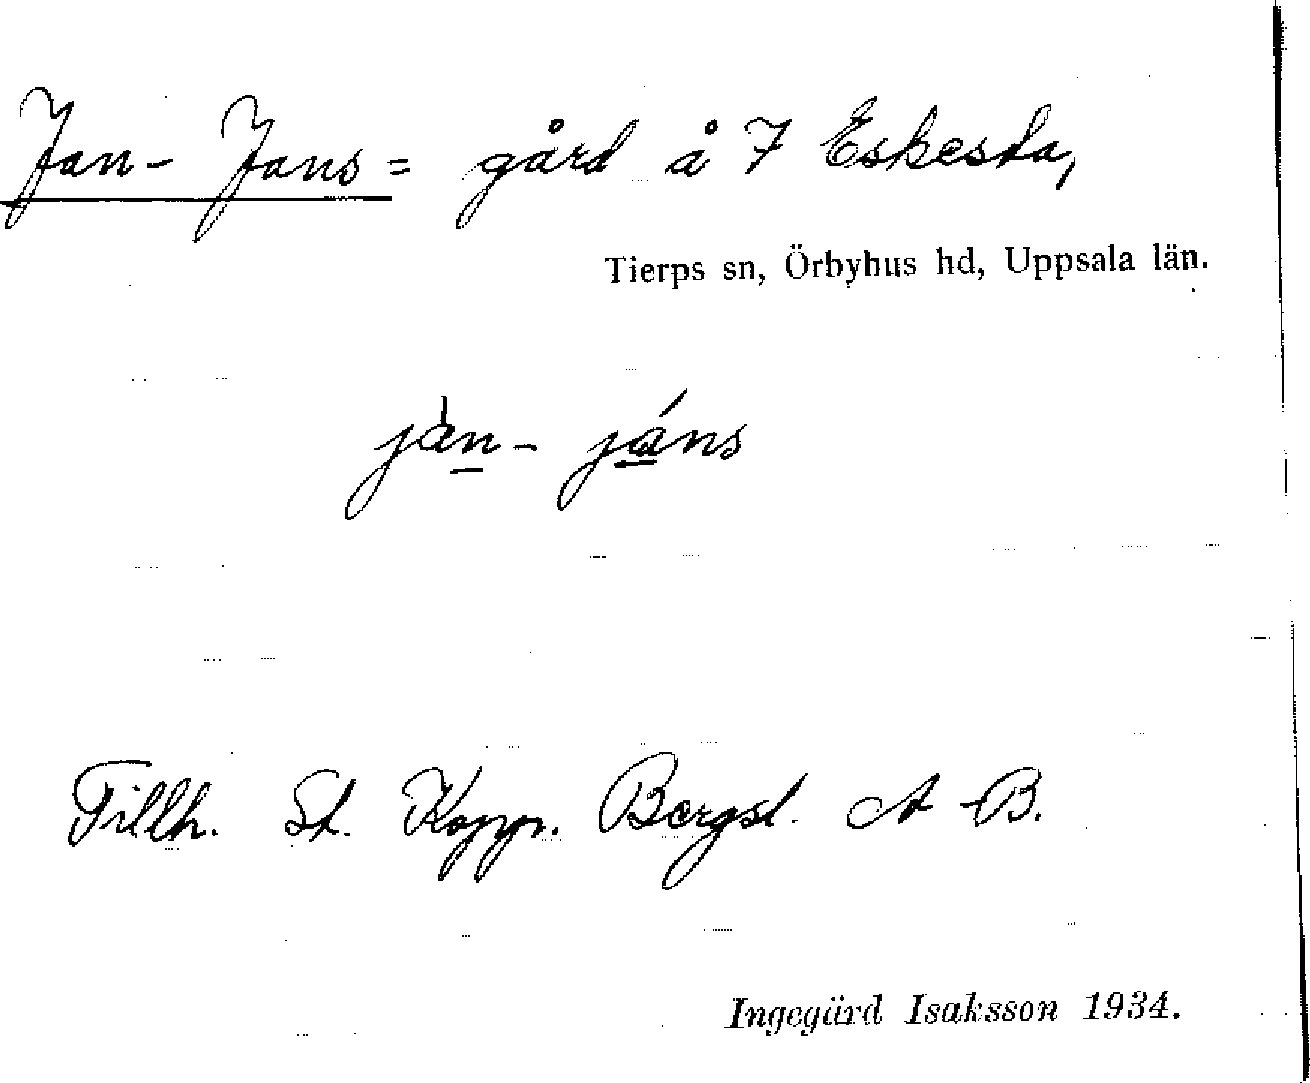 Jan-Jans= gård å 7 Eskesta,
Tierps sn, Örbyhus hd, Uppsala län.
jàn- jáns
Tillh. St. Kopp. Bergsl. A-B.
Ingegärd Isaksson 1934.